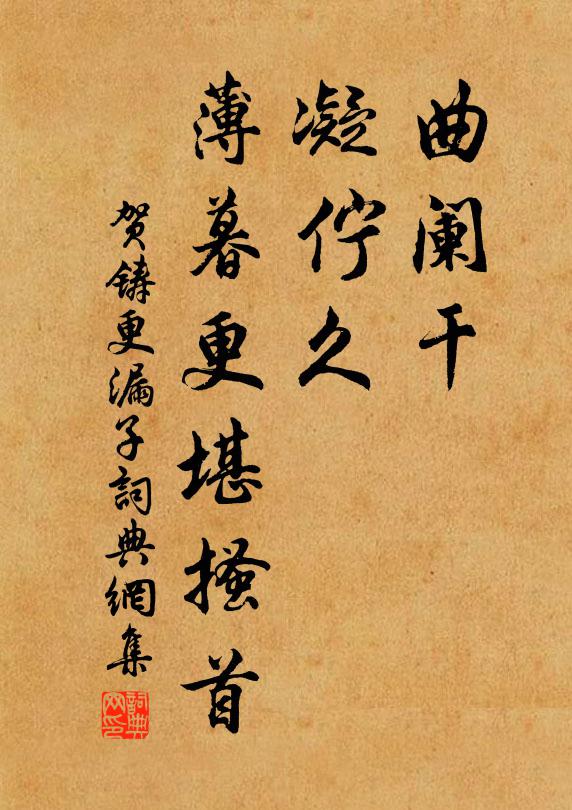 曲阑干
凝伫久
薄暮更堪搔首
贺铸更漏子詞典網集
詞典
网印